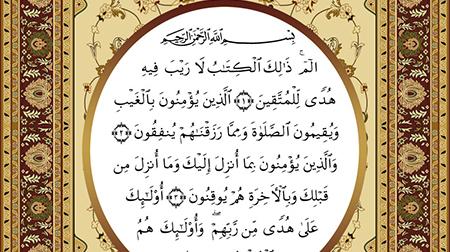 بِسْمِ اللَّهِ الرَّحْمَٰنِ الرَّحِيمِ
الٓمٓ ۚ ذَٰلِكَ ٱلْكِتَٰبُ لَا رَيْبَ فِيهِ
هُدًى لِّلْمُتَّقِينَ ﴿١﴾ ٱلَّذِينَ يُؤْمِنُونَ بِٱلْغَيْبِ
وَيُقِيمُونَ ٱلصَّلَوٰةَ وَمِمَّا رَزَقْنَٰهُمْ يُنفِقُونَ ﴿٢﴾
وَٱلَّذِينَ يُؤْمِنُونَ بِمَا أُنزِلَ إِلَيْكَ وَمَا أُنزِلَ مِن
قَبْلِكَ وَبِٱلْأَخِرَةِ هُمْ يُوقِنُونَ ﴿٣﴾ أُوْلَٰٓئِكَ
عَلَىٰ هُدًى مِّن رَّبِّهِمْ ۖ وَأُوْلَٰٓئِكَ هُمُ